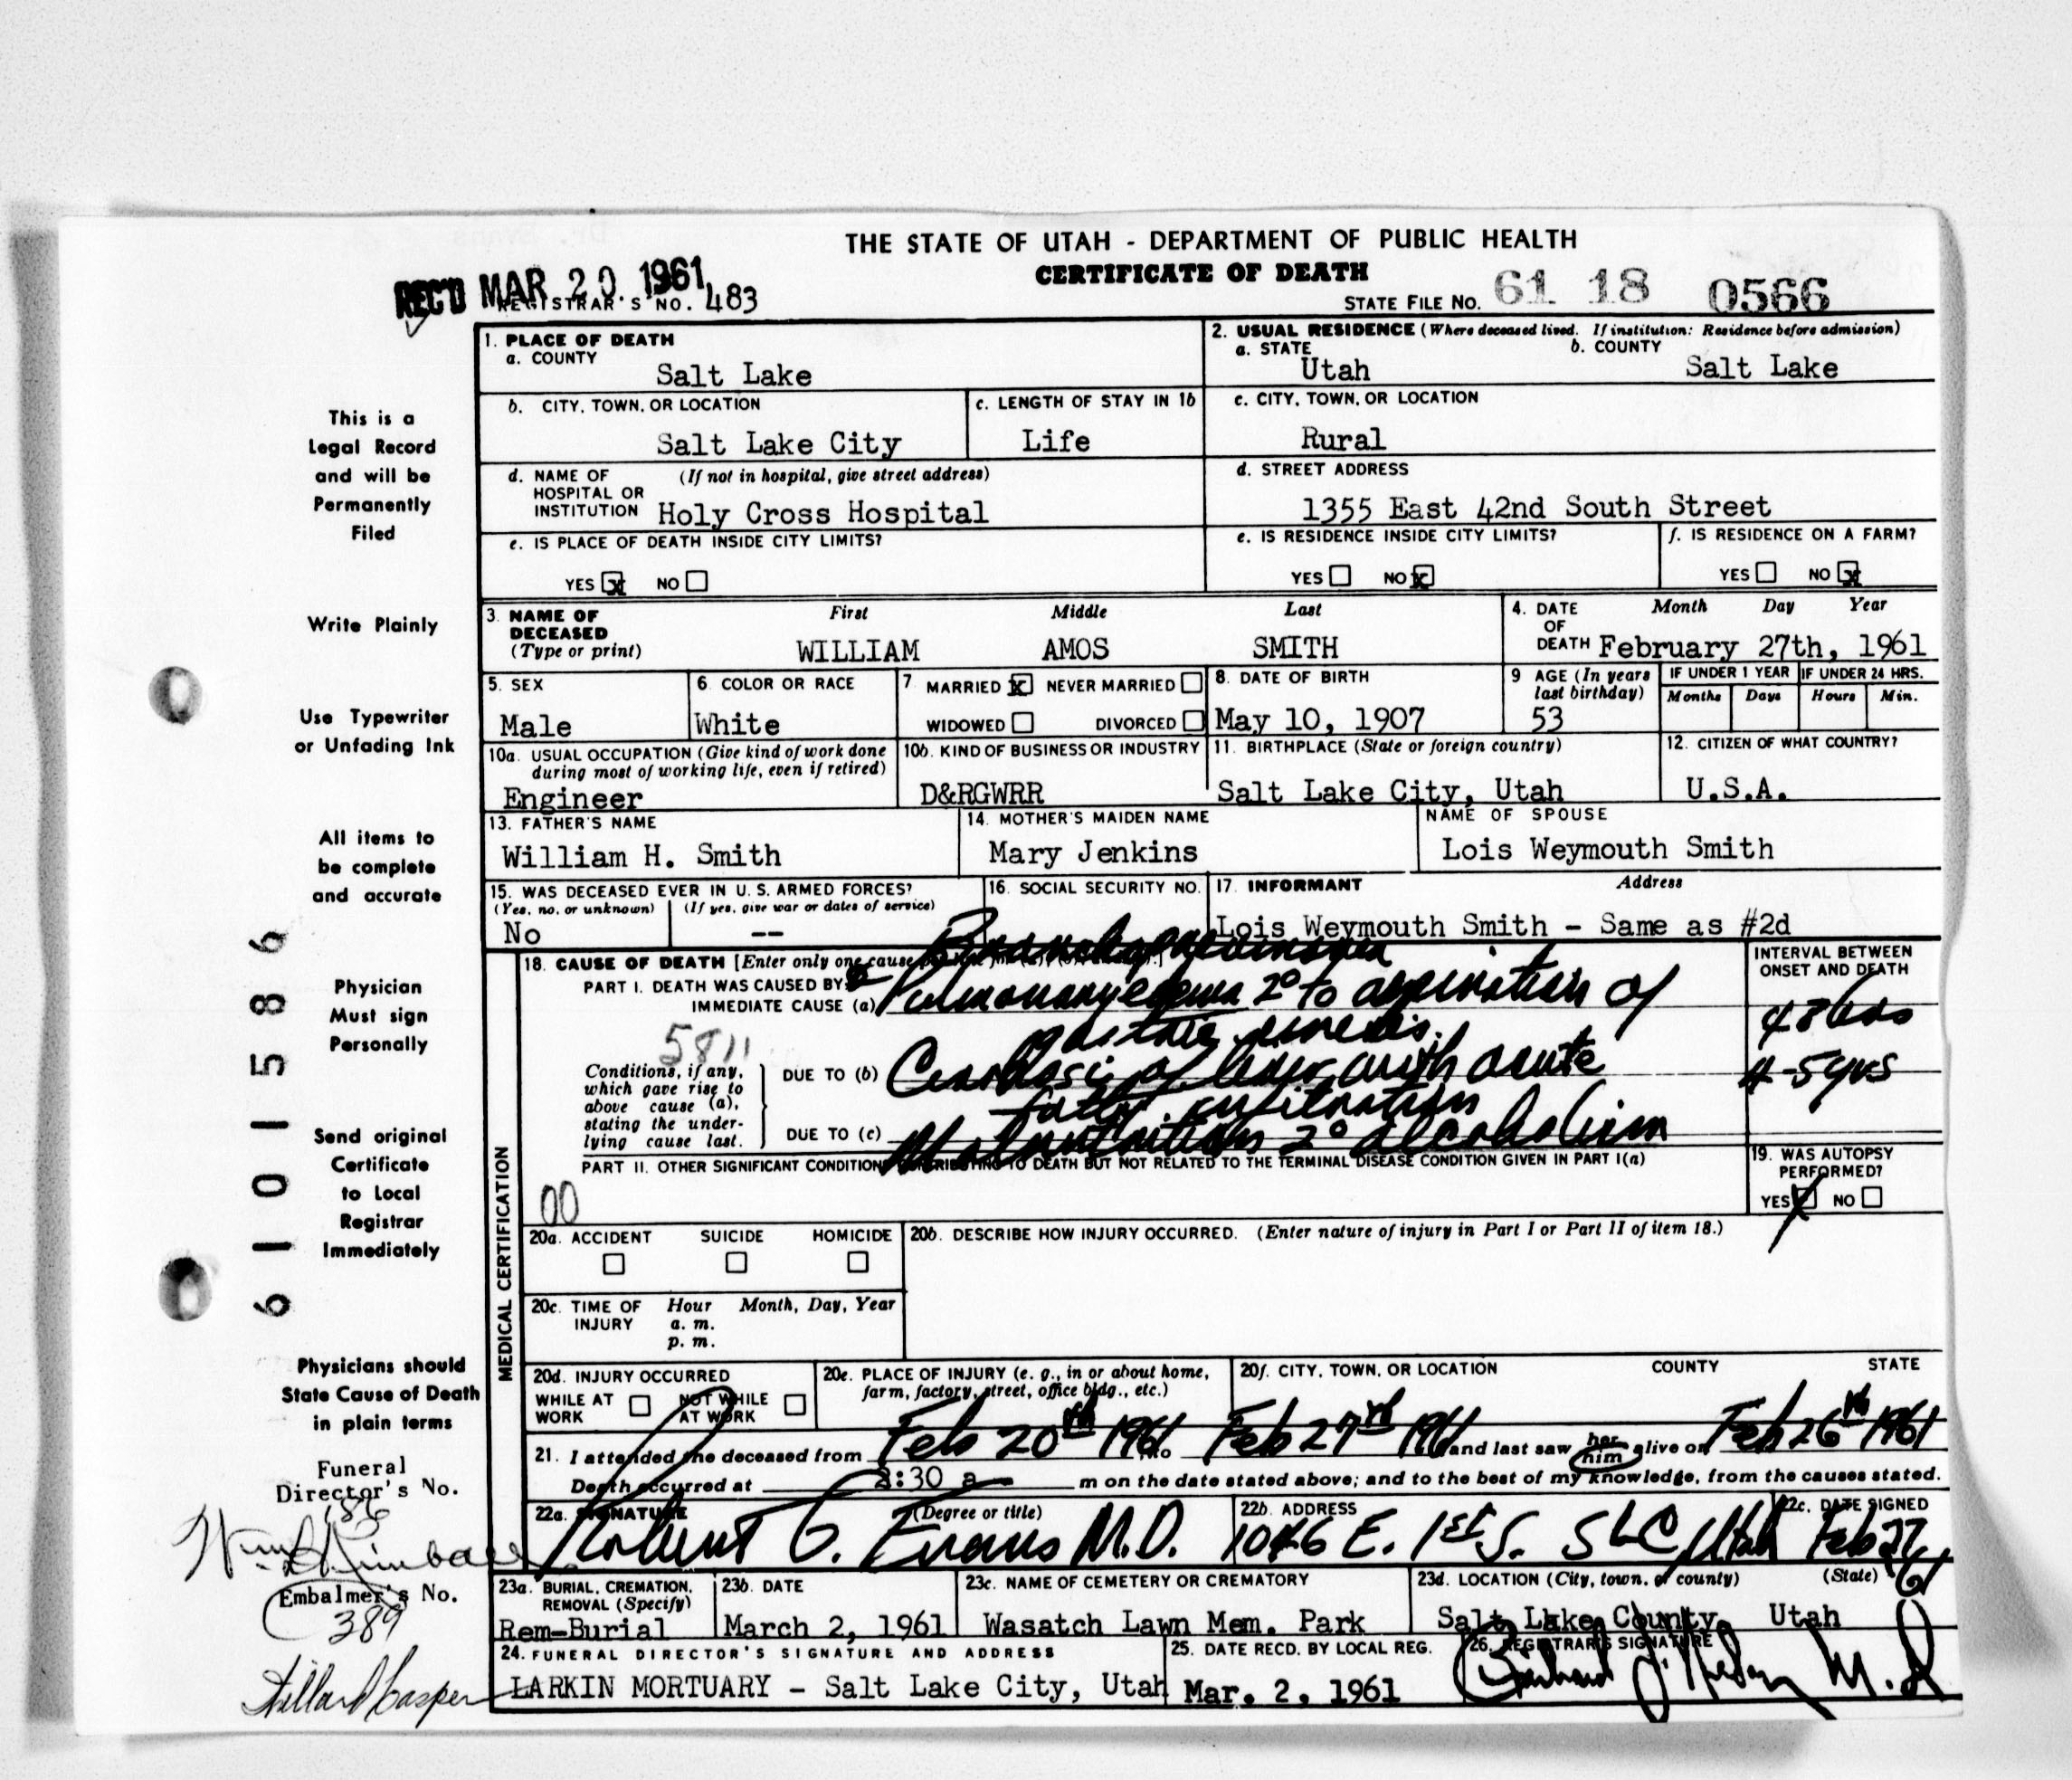 THE STATE OF UTAH - DEPARTMENT OF PUBLIC HEALTH
CERTIFICATE OF DEATH
REC'D MAR 20. 1961
REGISTRAR'S NO. 483
STATE FILE NO. 61 18 0566
1. PLACE OF DEATH
a. COUNTY
Salt Lake
2. USUAL RESIDENCE (Where deceased lived. If institution: Residence before admission)
a. STATE Utah b. COUNTY Salt Lake
b. CITY, TOWN, OR LOCATION
Salt Lake City
c. LENGTH OF STAY IN 1b
Life
c. CITY, TOWN, OR LOCATION
Rural
d. NAME OF HOSPITAL OR INSTITUTION (If not in hospital, give street address)
Holy Cross Hospital
d. STREET ADDRESS
1355 East 42nd South Street
e. IS PLACE OF DEATH INSIDE CITY LIMITS?
YES x NO
e. IS RESIDENCE INSIDE CITY LIMITS?
YES NO x
f. IS RESIDENCE ON A FARM?
YES NO x
3. NAME OF DECEASED (Type or print)
First Middle Last
WILLIAM AMOS SMITH
4. DATE OF DEATH Month Day Year
February 27th, 1961
5. SEX
Male
6. COLOR OR RACE
White
7 MARRIED x NEVER MARRIED
WIDOWED DIVORCED
8. DATE OF BIRTH
May 10, 1907
9 AGE (In years last birthday)
53
IF UNDER 1 YEAR
Months Days
IF UNDER 24 HRS.
Hours Min.
10a. USUAL OCCUPATION (Give kind of work done during most of working life, even if retired)
Engineer
10b. KIND OF BUSINESS OR INDUSTRY
D&RGWRR
11. BIRTHPLACE (State or foreign country)
Salt Lake City, Utah
12. CITIZEN OF WHAT COUNTRY?
U.S.A.
13. FATHER'S NAME
William H. Smith
14. MOTHER'S MAIDEN NAME
Mary Jenkins
NAME OF SPOUSE
Lois Weymouth Smith
15. WAS DECEASED EVER IN U.S. ARMED FORCES?
(Yes, no, or unknown) (If yes, give war or dates of service)
No --
16. SOCIAL SECURITY NO.
17. INFORMANT Address
Lois Weymouth Smith - Same as #2d
18. CAUSE OF DEATH [Enter only one cause
Bronchopneumonia
PART I. DEATH WAS CAUSED BY:
IMMEDIATE CAUSE (a) Pulmonary edema 2° to aspiration of
gastric emesis.
5811
Conditions, if any, which gave rise to above cause (a), stating the underlying cause last.
DUE TO (b) Cirrhosis of liver with acute
fatty infiltration
DUE TO (c) Malnutrition 2° alcoholism
INTERVAL BETWEEN ONSET AND DEATH
48 hrs
4-5 yrs
PART II. OTHER SIGNIFICANT CONDITIONS CONTRIBUTING TO DEATH BUT NOT RELATED TO THE TERMINAL DISEASE CONDITION GIVEN IN PART I(a)
00
19. WAS AUTOPSY PERFORMED?
YES X NO
MEDICAL CERTIFICATION
20a. ACCIDENT SUICIDE HOMICIDE
20b. DESCRIBE HOW INJURY OCCURRED. (Enter nature of injury in Part I or Part II of item 18.)
20c. TIME OF INJURY Hour Month, Day, Year
a. m.
p. m.
20d. INJURY OCCURRED
WHILE AT WORK NOT WHILE AT WORK
20e. PLACE OF INJURY (e. g., in or about home, farm, factory, street, office bldg., etc.)
20f. CITY, TOWN, OR LOCATION COUNTY STATE
21. I attended the deceased from Feb 20th 1961 to Feb 27rd 1961 and last saw her him alive on Feb 26th 1961
Death occurred at 3:30 a m on the date stated above; and to the best of my knowledge, from the causes stated.
22a. SIGNATURE (Degree or title)
Robert G. Evans M.D.
22b. ADDRESS
1046 E. 1st S. SLC, Utah
22c. DATE SIGNED
Feb 27 61
23a. BURIAL, CREMATION, REMOVAL (Specify)
Rem-Burial
23b. DATE
March 2, 1961
23c. NAME OF CEMETERY OR CREMATORY
Wasatch Lawn Mem. Park
23d. LOCATION (City, town, or county) (State)
Salt Lake County, Utah
24. FUNERAL DIRECTOR'S SIGNATURE AND ADDRESS
LARKIN MORTUARY - Salt Lake City, Utah
25. DATE RECD. BY LOCAL REG.
Mar. 2, 1961
26. REGISTRAR'S SIGNATURE
M.D
This is a
Legal Record
and will be
Permanently
Filed
Write Plainly
Use Typewriter
or Unfading Ink
All items to
be complete
and accurate
Physician
Must sign
Personally
Send original
Certificate
to Local
Registrar
Immediately
Physicians should
State Cause of Death
in plain terms
Funeral
Director's No.
186
Embalmer's No.
389
6101586